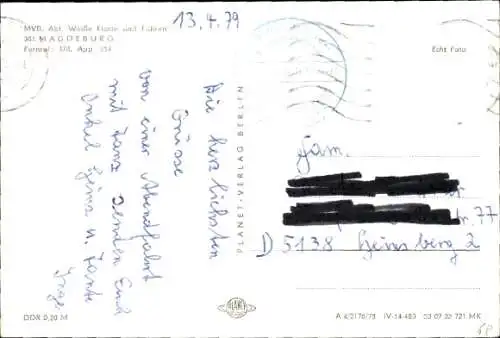 MVB, Abt. Weiße Flotte und Fähren
301 MAGDEBURG
Fernruf: 378, App. 354
13.4.79
Echt Foto
Die herzlichsten
Grüsse
von einer Abendfahrt
mit Tanz senden Euch
Onkel Heinz u. Tante
Inge
PLANET-VERLAG BERLIN
Fam.
77
D 5138 Heinsberg 2
DDR 0,20 M
PLANET
A 6/2176/75 IV-14-483 03 07 32 721 MK